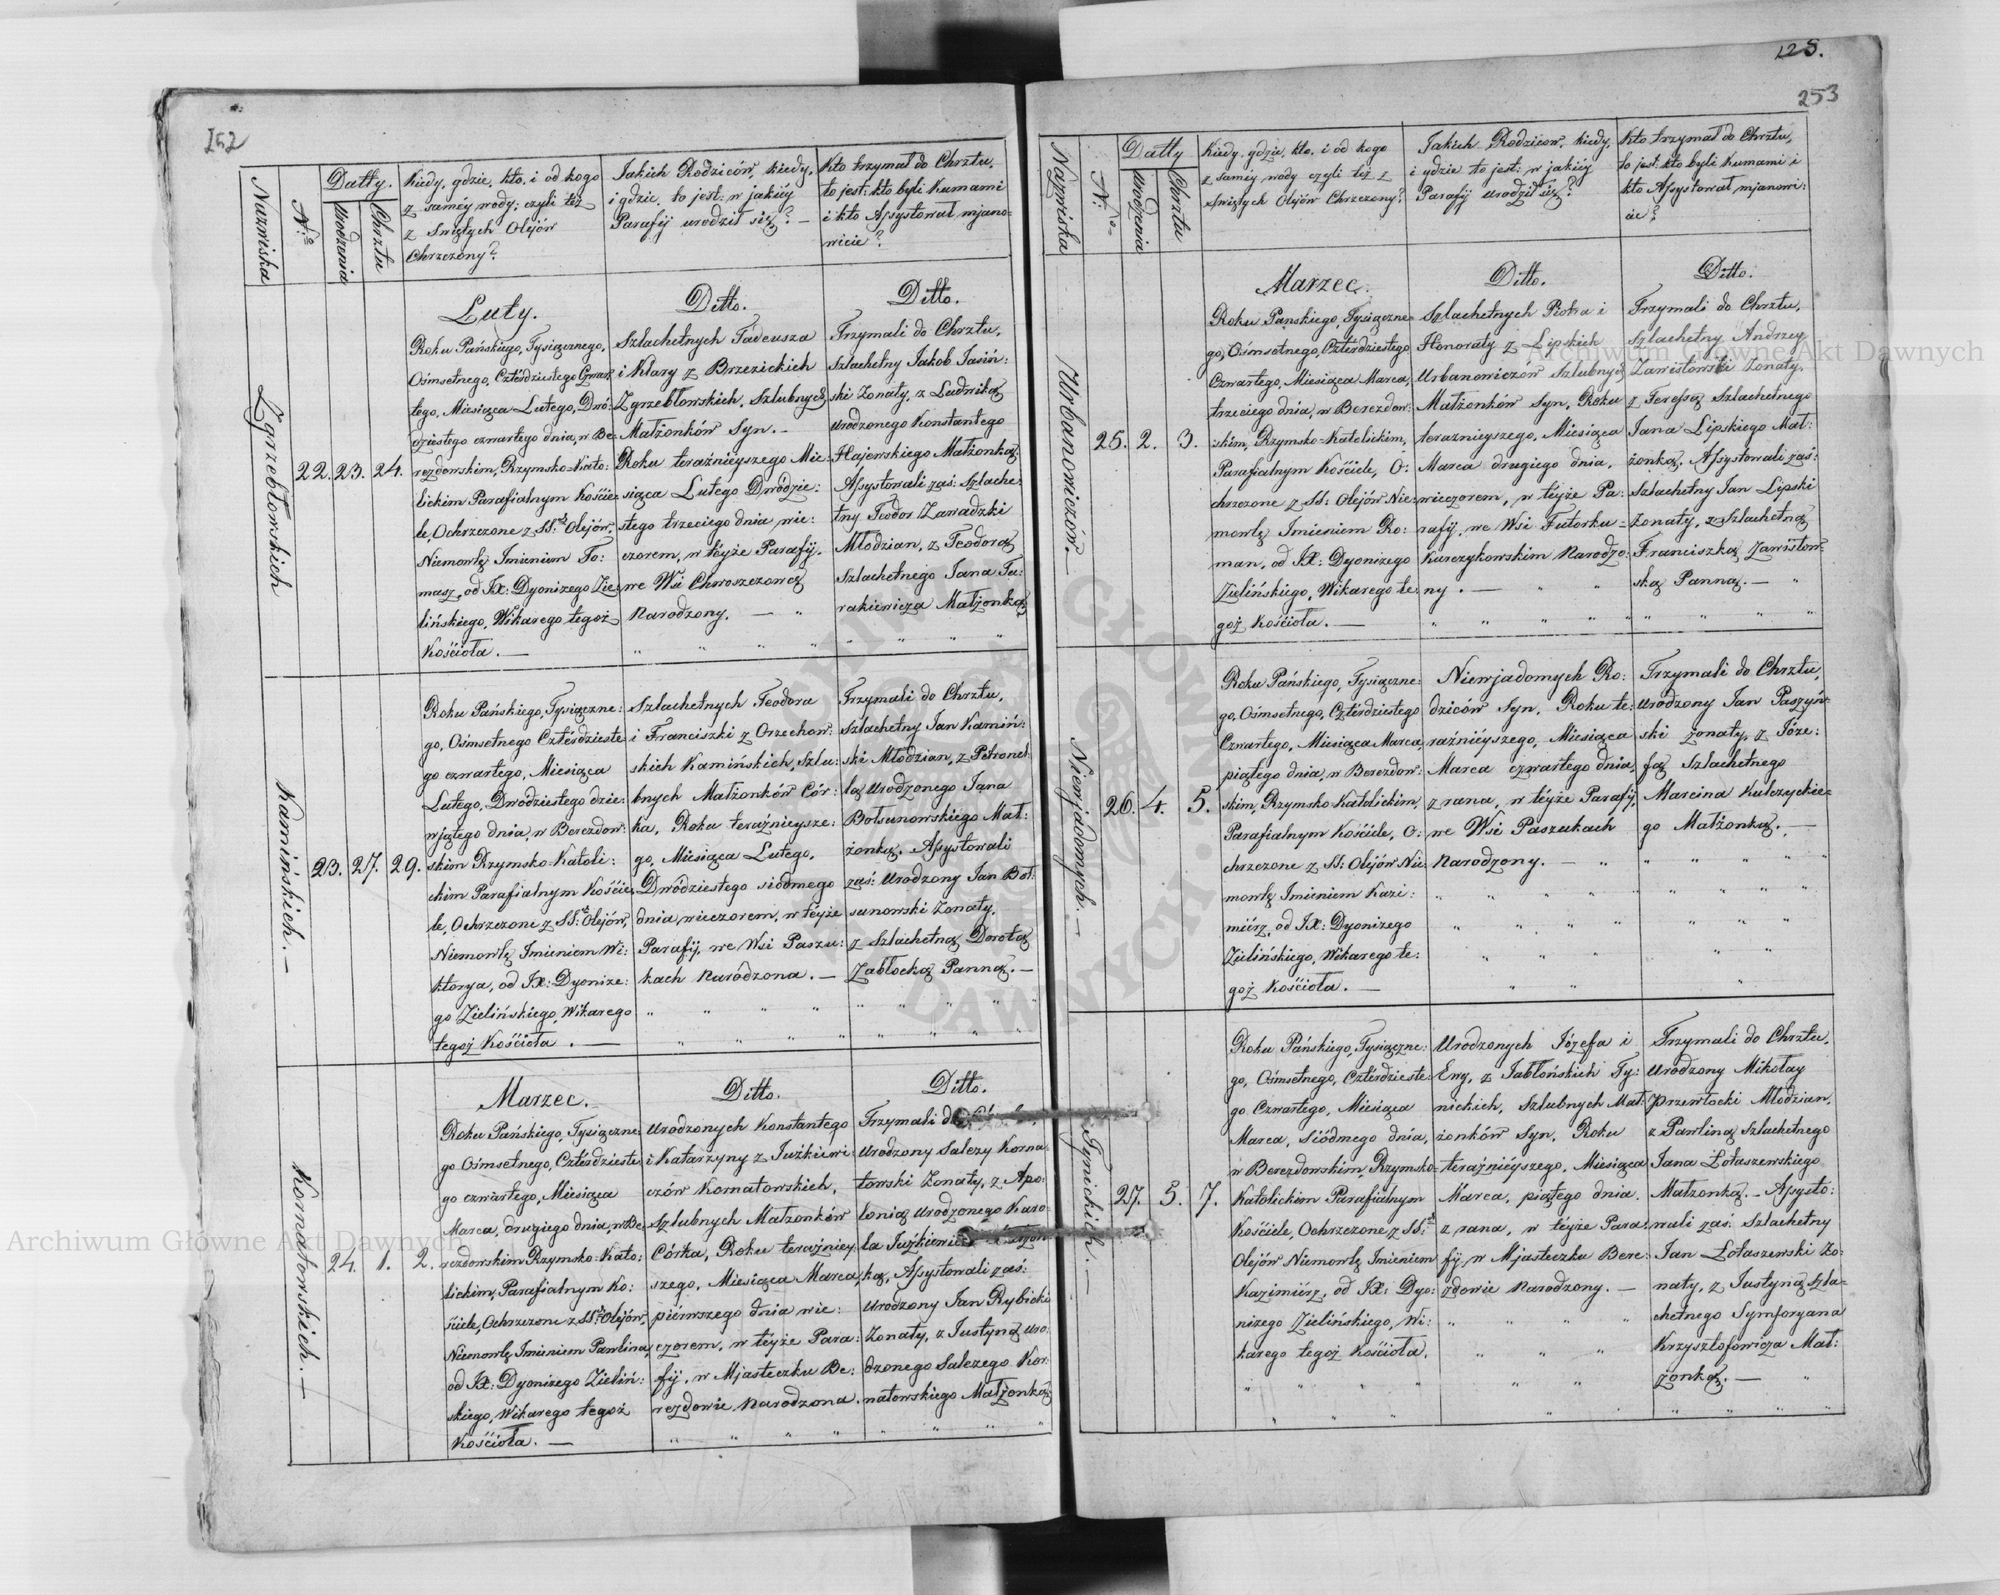 252
Nazwiska
N:o
Datty.
Urodzenia
Chrztu
Kiedy, gdzie, kto, i od kogo
z saméy wody, czyli też
z Swiętych Olejów
Chrzczony?
Jakich Rodziców, kiedy,
i gdzie, to jest: w jakiéy
Parafij urodził się? –
Kto trzymał do Chrztu,
to jest: kto byli Kumami
i kto Assystował mjano-
wicie?
Zgrzebłowskich
22. 23. 24.
Luty.
Roku Pańskiego, Tysiącznego,
Ośmsetnego, Cztérdziestego Czwar:
tego, Miesiąca Lutego, Dwó:
dziestego czwartego dnia, w Be:
rezdowskim, Rzymsko-Kato:
lickim Parafialnym Koście:
le, Ochrzczone z SS: Olejów,
Niemowlę Imieniem To:
masz, od JX: Dyonizego Zie:
lińskiego, Wikarego tegoż
Kościoła. —
Ditto.
Szlachetnych Tadeusza
i Klary z Brzezickich
Zgrzebłowskich, Szlubnych
Małżonków Syn. –
Roku teraźnieyszego Mie:
siąca Lutego Dwódzie:
stego trzeciego dnia, wie:
czorem, w téyże Parafij,
we Wsi Chwoszczowcą
Narodzony. — "
" " " "
Ditto.
Trzymali do Chrztu,
Szlachetny Jakob Jasiń:
ski Żonaty, z Ludwiką
Urodzonego Konstantego
Hajewskiego Małżonką.
Assystowali zaś: Szlache:
tny Teodor Zawadzki
Młodzian, z Teodorą
Szlachetnego Jana Ta:
rakiewicza Małżonką.
" " " "
Kamińskich. —
23. 27. 29.
Roku Pańskiego, Tysiączne:
go, Ośmsetnego Cztérdzieste:
go czwartego, Miesiąca
Lutego, Dwódziestego dzie:
wjątego dnia, w Berezdow:
skim Rzymsko-Katoli:
ckim Parafialnym Koście:
le, Ochrzczone z SS: Olejów,
Niemowlę Imieniem Wi:
ktorya, od JX: Dyonize:
go Zielińskiego, Wikarego
tegoż Kościoła. —
Szlachetnych Teodora
i Franciszki z Orzechow:
skich Kamińskich, Szlu:
bnych Małżonków Cór:
ka, Roku teraźnieysze:
go, Miesiąca Lutego,
Dwódziestego siódmego
dnia, wieczorem, w téyże
Parafij, we Wsi Paszu:
kach Narodzona. —
" " " "
" " " "
Trzymali do Chrztu,
Szlachetny Jan Kamiń:
ski Młodzian, z Petronel:
lą Urodzonego Jana
Bołsunowskiego Mał:
żonką. Assystowali
zaś: Urodzony Jan Boł:
sunowski Żonaty,
z Szlachetną Dorotą
Zabłocką Panną. —
" " " "
" " " "
Kornatowskich. —
24. 1. 2.
Marzec.
Roku Pańskiego, Tysiączne:
go Ośmsetnego, Cztérdzieste:
go czwartego, Miesiąca
Marca, drugiego dnia, w Be:
rezdowskim Rzymsko-Kato:
lickim, Parafialnym Ko:
ściele, Ochrzczone z SS: Olejów,
Niemowlę Imieniem Pawlina,
od JX: Dyonizego Zieliń:
skiego, Wikarego tegoż
Kościoła. —
Ditto.
Urodzonych Konstantego
i Katarzyny z Juźkiewi:
czów Kornatowskich,
Szlubnych Małżonków
Córka, Roku teraźniey:
szego, Miesiąca Marca,
piérwszego dnia wie:
czorem, w téyże Para:
fij, w Mjasteczku Be:
rezdowie Narodzona.
" " " "
Ditto.
Trzymali do
Urodzony Salezy Korna:
towski Żonaty, z Apo:
lonią Urodzonego Karo:
la Juźkiewicza
ką, Assystowali zaś:
Urodzony Jan Rybicki
Żonaty, z Justyną Uro:
dzonego Salezego Kor:
natowskiego Małżonką.
" " " "
125.
253
Nazwiska
N:o
Datty
Urodzenia
Chrztu
Kiedy, gdzie, kto, i od kogo
z saméy wody czyli też z
Swiętych Olejów Chrzczony?
Jakich Rodziców, kiedy,
i gdzie to jest: w jakiéy
Parafij urodził się?
Kto trzymał do Chrztu,
to jest: kto byli Kumami i
kto Assystował mjanowi:
cie?
Urbanowiczów. —
25. 2. 3.
Marzec.
Roku Pańskiego, Tysiączne:
go, Ośmsetnego, Cztérdziestego
Czwartego, Miesiąca Marca,
trzeciego dnia, w Berezdow:
skim, Rzymsko-Katolickim,
Parafialnym Kościele, O:
chrzczone z SS: Olejów Nie:
mowlę Imieniem Ro:
man, od JX: Dyonizego
Zielińskiego, Wikarego te:
goż Kościoła. —
Ditto.
Szlachetnych Piotra i
Honoraty z Lipskich
Urbanowiczów Szlubnych
Małżonków Syn, Roku
teraznieyszego, Miesiąca
Marca drugiego dnia,
wieczorem, w téyże Pa:
rafij, we Wsi Futorku-
Kurczykowskim Narodzo:
ny. — " "
" " " "
Ditto.
Trzymali do Chrztu,
Szlachetny Andrzey
Zawistowski Żonaty,
z Teressą Szlachetnego
Jana Lipskiego Mał:
żonką, Assystowali zaś:
Szlachetny Jan Lipski
Żonaty, z Szlachetną
Franciszką Zawistow:
ską Panną. — "
" " " "
Niewjadomych. —
26. 4. 5.
Roku Pańskiego, Tysiączne:
go, Ośmsetnego, Cztérdziestego
Czwartego, Miesiąca Marca
piątego dnia, w Berezdow:
skim, Rzymsko-Katolickim,
Parafialnym Kościele, O:
chrzczone z SS: Olejów Nie:
mowlę Imieniem Kazi:
miérz, od JX: Dyonizego
Zielińskiego, Wikarego te:
goż Kościoła. —
Niewjadomych Ro:
dziców Syn, Roku te:
raźniéyszego, Miesiąca
Marca czwartego dnia,
z rana, w téyże Parafij,
we Wsi Paszukach
Narodzony. — "
" " " "
" " " "
" " "
" "
Trzymali do Chrztu,
Urodzony Jan Paszyń:
ski Żonaty, z Józe:
fą Szlachetnego
Marcina Kulczyckie:
go Małżonką. —
" " " " "
" " " "
" " "
" "
"
Tynickich. —
27. 5. 7.
Roku Pańskiego, Tysiączne:
go, Ośmsetnego, Cztérdzieste:
go Czwartego, Miesiąca
Marca, Siódmego dnia,
w Berezdowskim, Rzymsko-
Katolickim Parafialnym
Kościele, Ochrzczone z SS:
Olejów Niemowlę Imieniem
Kazimiérz, od JX: Dyo:
nizego Zielińskiego, Wi:
karego tegoż Kościoła.
" " " "
" " "
Urodzonych Józefa i
Ewy, z Jabłońskich Ty:
nickich, Szlubnych Mał:
żonków Syn, Roku
teraźniéyszego, Miesiąca
Marca, piątego dnia,
z rana, w téyże Para:
fij, w Mjasteczku Bere:
zdowie Narodzony. —
" " " "
" " "
" "
" "
Trzymali do Chrztu,
Urodzony Mikołay
Przewłocki Młodzian,
z Pawliną Szlachetnego
Jana Łotaszewskiego
Małżonką. – Assysto:
wali zaś: Szlachetny
Jan Łotaszewski Żo:
naty, z Justyną Szla:
chetnego Symforyana
Krzysztofowicza Mał:
żonką. — "
" " " "
Archiwum Główne Akt Dawnych
Archiwum Główne Akt Dawnych